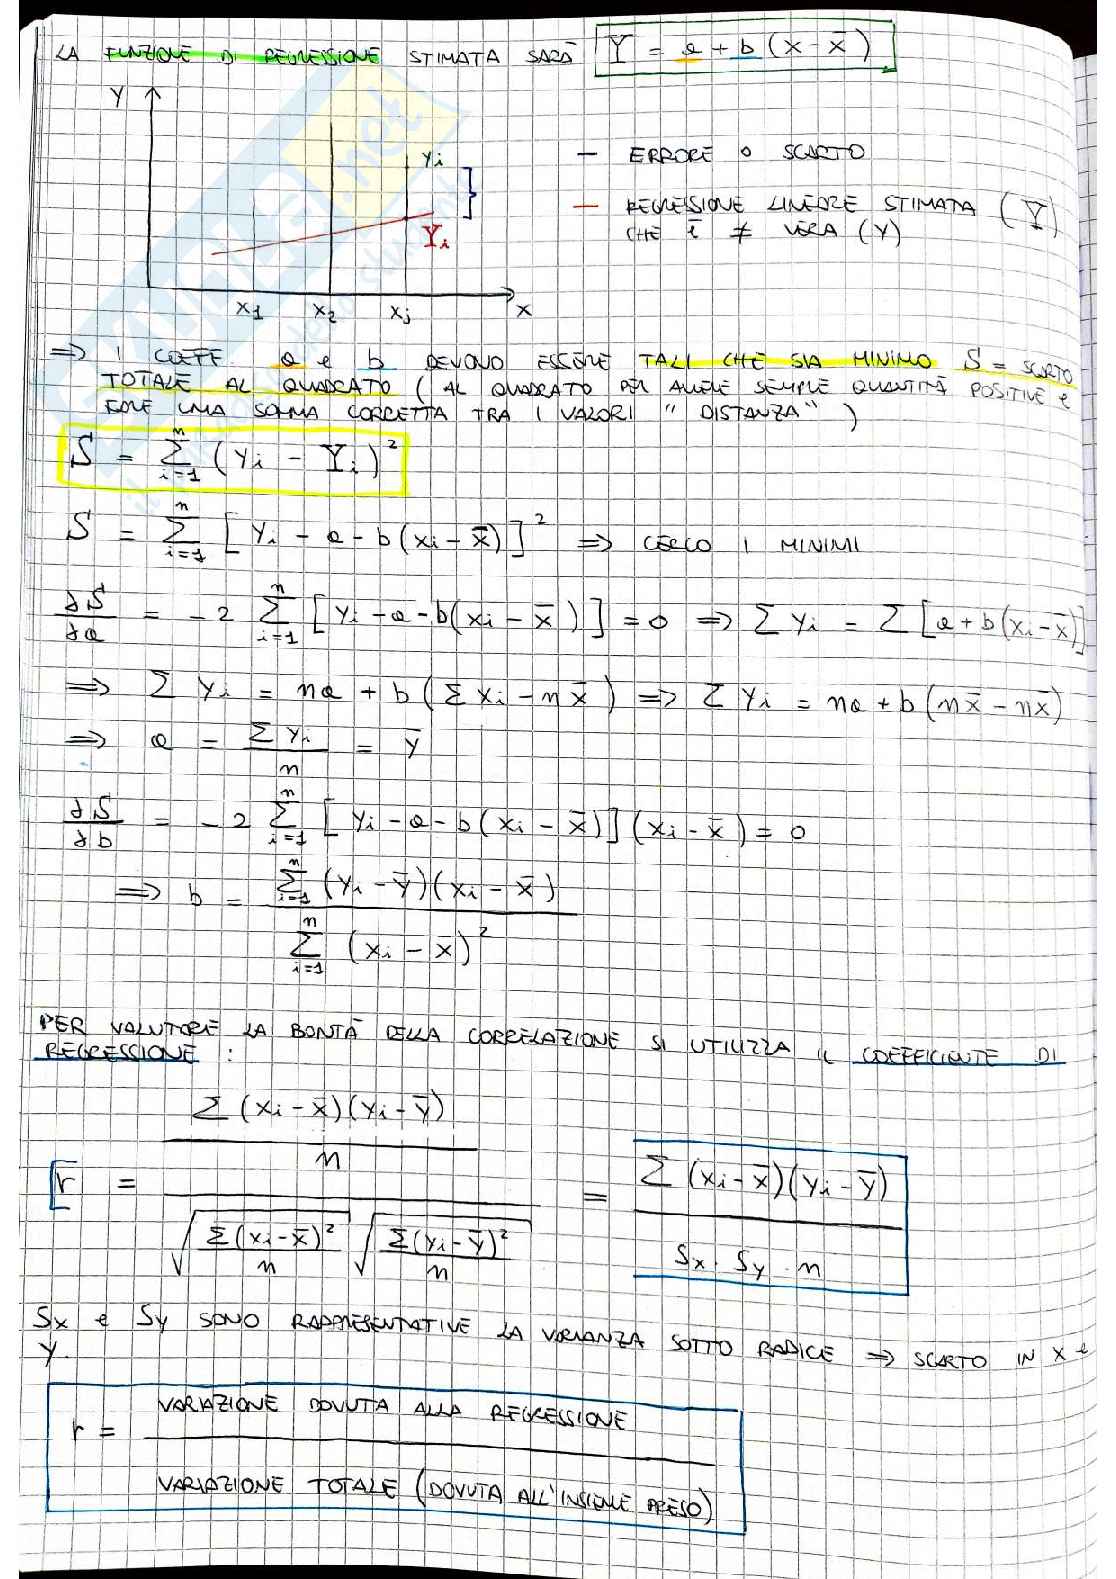 LA FUNZIONE DI REGRESSIONE STIMATA SARÀ Y = a + b (x - x̄)
Y
yi
— ERRORE o SCARTO
— REGRESSIONE LINEARE STIMATA (Y)
CHE È ≠ VERA (Y)
Yi
x1 x2 xj x
⇒ I COEFF a e b DEVONO ESSERE TALI CHE SIA MINIMO S = SCARTO
TOTALE AL QUADRATO ( AL QUADRATO PER AVERE SEMPRE QUANTITÀ POSITIVE e
FARE UNA SOMMA CORRETTA TRA I VALORI " DISTANZA" )
S = Σ_{i=1}^{n} (yi - Yi)²
S = Σ_{i=1}^{n} [yi - a - b(xi - x̄)]² ⇒ CERCO I MINIMI
∂S/∂a = -2 Σ_{i=1}^{n} [yi - a - b(xi - x̄)] = 0 ⇒ Σ yi = Σ [a + b(xi - x̄)]
⇒ Σ yi = na + b(Σ xi - n x̄) ⇒ Σ yi = na + b(n x̄ - n x̄)
⇒ a = Σ yi / n = ȳ
∂S/∂b = -2 Σ_{i=1}^{n} [yi - a - b(xi - x̄)](xi - x̄) = 0
⇒ b = Σ_{i=1}^{n} (yi - ȳ)(xi - x̄) / Σ_{i=1}^{n} (xi - x̄)²
PER VALUTARE LA BONTÀ DELLA CORRELAZIONE SI UTILIZZA IL COEFFICIENTE DI
REGRESSIONE :
r = (Σ (xi - x̄)(yi - ȳ) / n) / (√(Σ(xi - x̄)² / n) √(Σ(yi - ȳ)² / n)) = Σ (xi - x̄)(yi - ȳ) / (Sx · Sy · n)
Sx e Sy SONO RAPPRESENTATIVE LA VARIANZA SOTTO RADICE ⇒ SCARTO IN X e
Y.
r = VARIAZIONE DOVUTA ALLA REGRESSIONE / VARIAZIONE TOTALE (DOVUTA ALL'INSIEME PRESO)